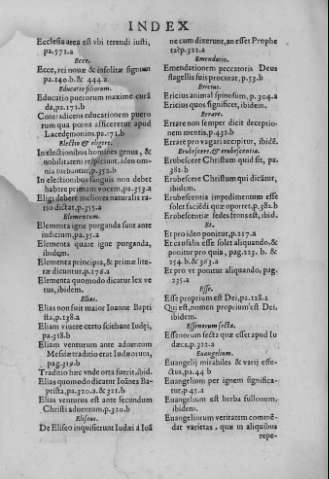 INDEX
Ecclesia area est vbi terendi iusti,
pa.771.a
Ecce.
Ecce, rei nouæ & insolitæ signum
pa.240.b. & 444.a
Educatio filiorum.
Educatio puerorum maxime
da,pa.171.b
educationem puero
rum qua poena afficeretur apud
Lacedemonios pa.171.b
Electio & eligere.
In electionibus homines genus, &
nobilitatem respiciunt, ideo om
nia turbantur, p.352.b
In electionibus sanguis non debet
habere primam vocem,pa.353.a
Eligi debere meliores naturalis ra
tio dictat, p.355.a
Elementum.
Elementa igne purganda sunt ante
iudicium,pa.35.a
Elementa quare igne purganda,
ibidem.
Elementa principia, & primæ lite-
ræ dicuntur,p.176.a
Elementa quomodo dicatur lex ve
tus, ibidem.
Elias.
Elias non fuit maior Ioanne Bapti
sta,p.138.a
Eliam viuere certo scitbant Iudęi,
pa.318.b
Eliam venturum ante aduentum
Messiæ traditio erat Iudæorum,
pag.319.b
Traditio hæc vnde orta fuerit,ibid.
Elias quomodo dicatur Ioānes Ba-
ptista,pa.320.a. & 321.b
Elias venturus est ante secundum
Christi aduentum, p.320.b
Eliseus.
De Eliseo inquisierunt Iudæi à Ioā
ne cum dixerunt, an esset Prophe
ta?p.321.a
Emendatio.
Emendationem peccatoris Deus
flagellis suis procurat, p.53.b
Ericius.
Ericius animal spinosum, p.304.a
Ericius quos significet, ibidem.
Errare.
Errare non semper dicit deceptio-
nem mentis,p.432.b
Errare pro vagari accipitur, ibidē.
Erubescere, & erubescentia.
Erubescere Christum quid sit, pa.
382.b
Erubescere Christum qui dicātur,
ibidem.
Erubescentia impedimentum esse
solet faciēdi quæ oportet,p.382.b
Erubescentiæ sedes frons est, ibid.
Et.
Et pro ideo ponitur, p.117.a
Et causalis esse solet aliquando,&
ponitur pro quia, pag.223. b. &
254.b.& 363.a
Et pro vt ponitur aliquando, pag.
235.a
Esse.
Esse proprium est Dei, pa.128.a
Qui est,nomen proprium est Dei.
ibidem.
Essenorum secta.
Essenorum secta quæ esset apud Iu
dæos,p.322.a
Euangelium.
Euangelij mirabiles & varij effe-
ctus,pa.44 b
Euangelium per ignem significa-
tur,p.45.a
Euangelium est herba fullonum,
ibidem.
Euangeliorum veritatem commē-
dat varietas, quæ in aliquibus
repe-